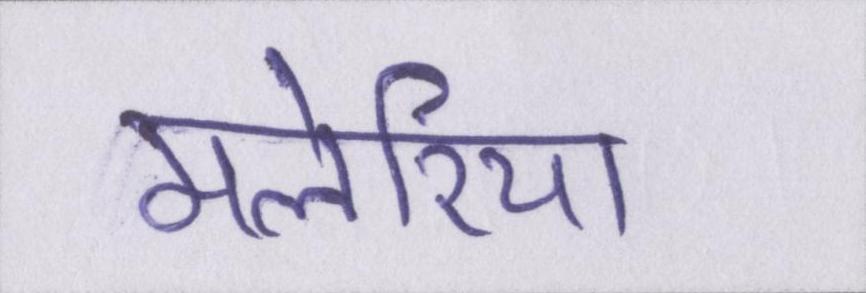 मलेरिया